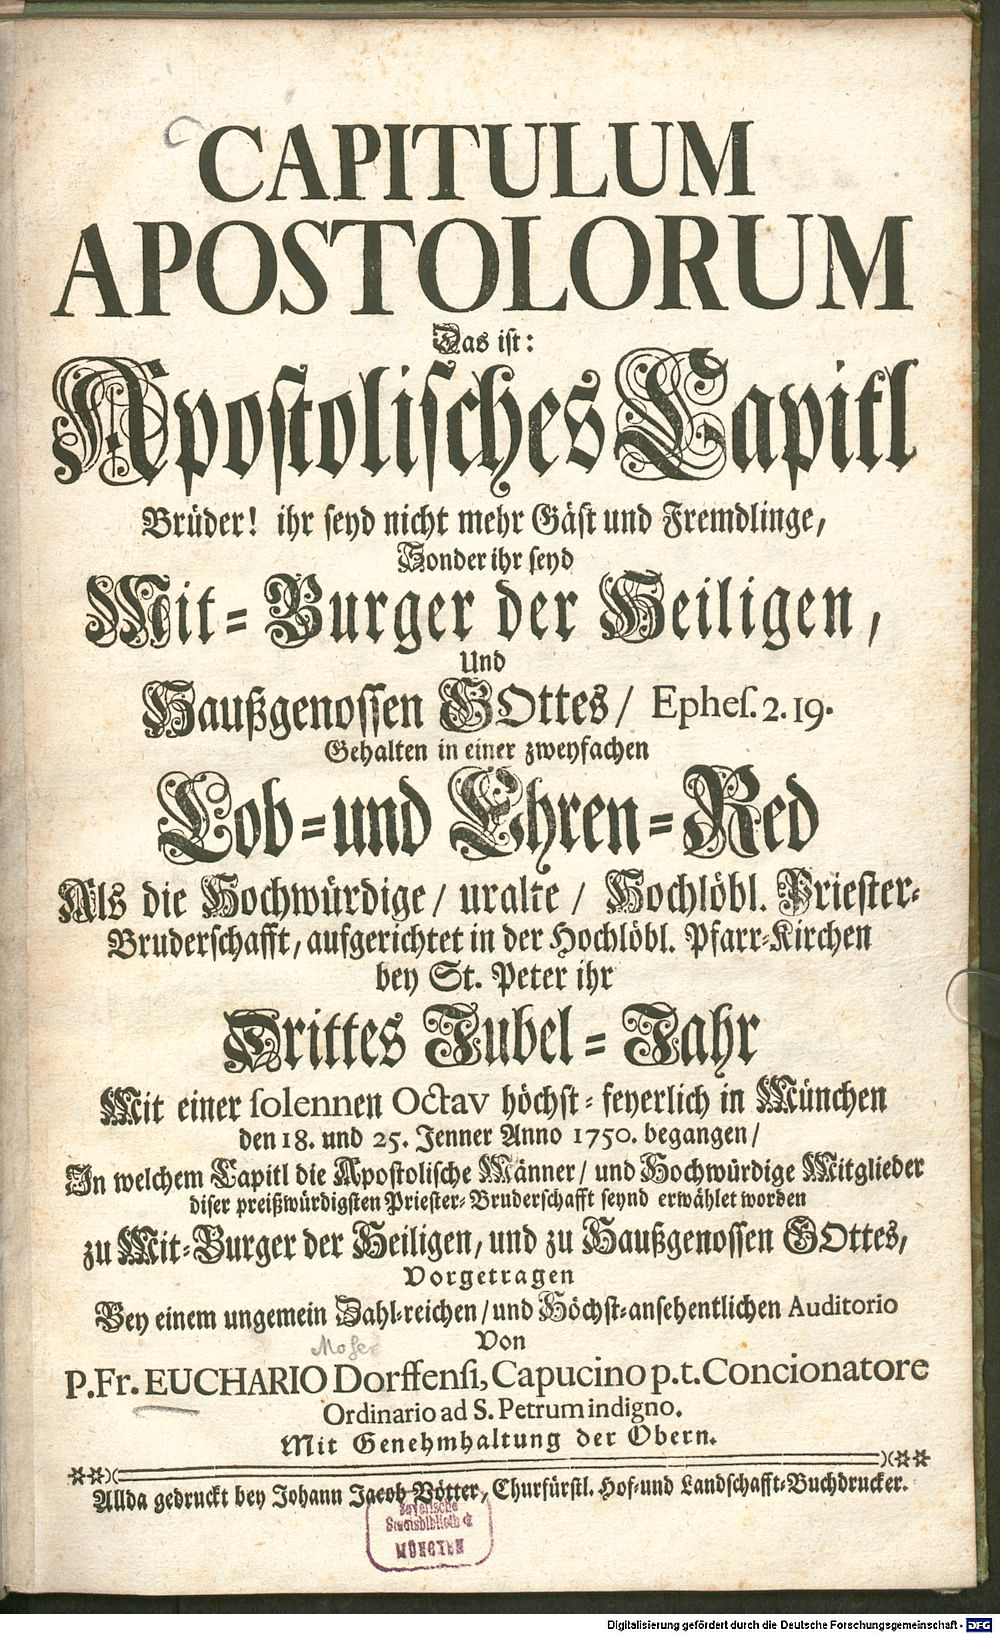 CAPITULUM
APOSTOLORUM
Das ist:
Apostolisches Capitl
Brüder! ihr seyd nicht mehr Gäst und Fremdlinge,
Sonder ihr seyd
Mit-Burger der Heiligen,
Und
Haußgenossen GOttes / Ephes. 2. 19.
Gehalten in einer zweyfachen
Lob- und Ehren-Red
Als die Hochwürdige / uralte / Hochlöbl. Priester-
Bruderschafft, aufgerichtet in der Hochlöbl. Pfarr-Kirchen
bey St. Peter ihr
Drittes Jubel-Jahr
Mit einer solennen Octav höchst-feyerlich in München
den 18. und 25. Jenner Anno 1750. begangen /
In welchem Capitl die Apostolische Männer / und Hochwürdige Mitglieder
diser preißwürdigsten Priester-Bruderschafft seynd erwählet worden
zu Mit-Burger der Heiligen, und zu Haußgenossen GOttes,
Vorgetragen
Bey einem ungemein Zahl-reichen / und Höchst-ansehentlichen Auditorio
Von
Moser
P. Fr. EUCHARIO Dorffensi, Capucino p. t. Concionatore
Ordinario ad S. Petrum indigno.
Mit Genehmhaltung der Obern.
Allda gedruckt bey Johann Jacob Vötter, Churfürstl. Hof- und Landschafft-Buchdrucker.
Bayerische
Staatsbibliothek
MÜNCHEN
Digitalisierung gefördert durch die Deutsche Forschungsgemeinschaft - DFG